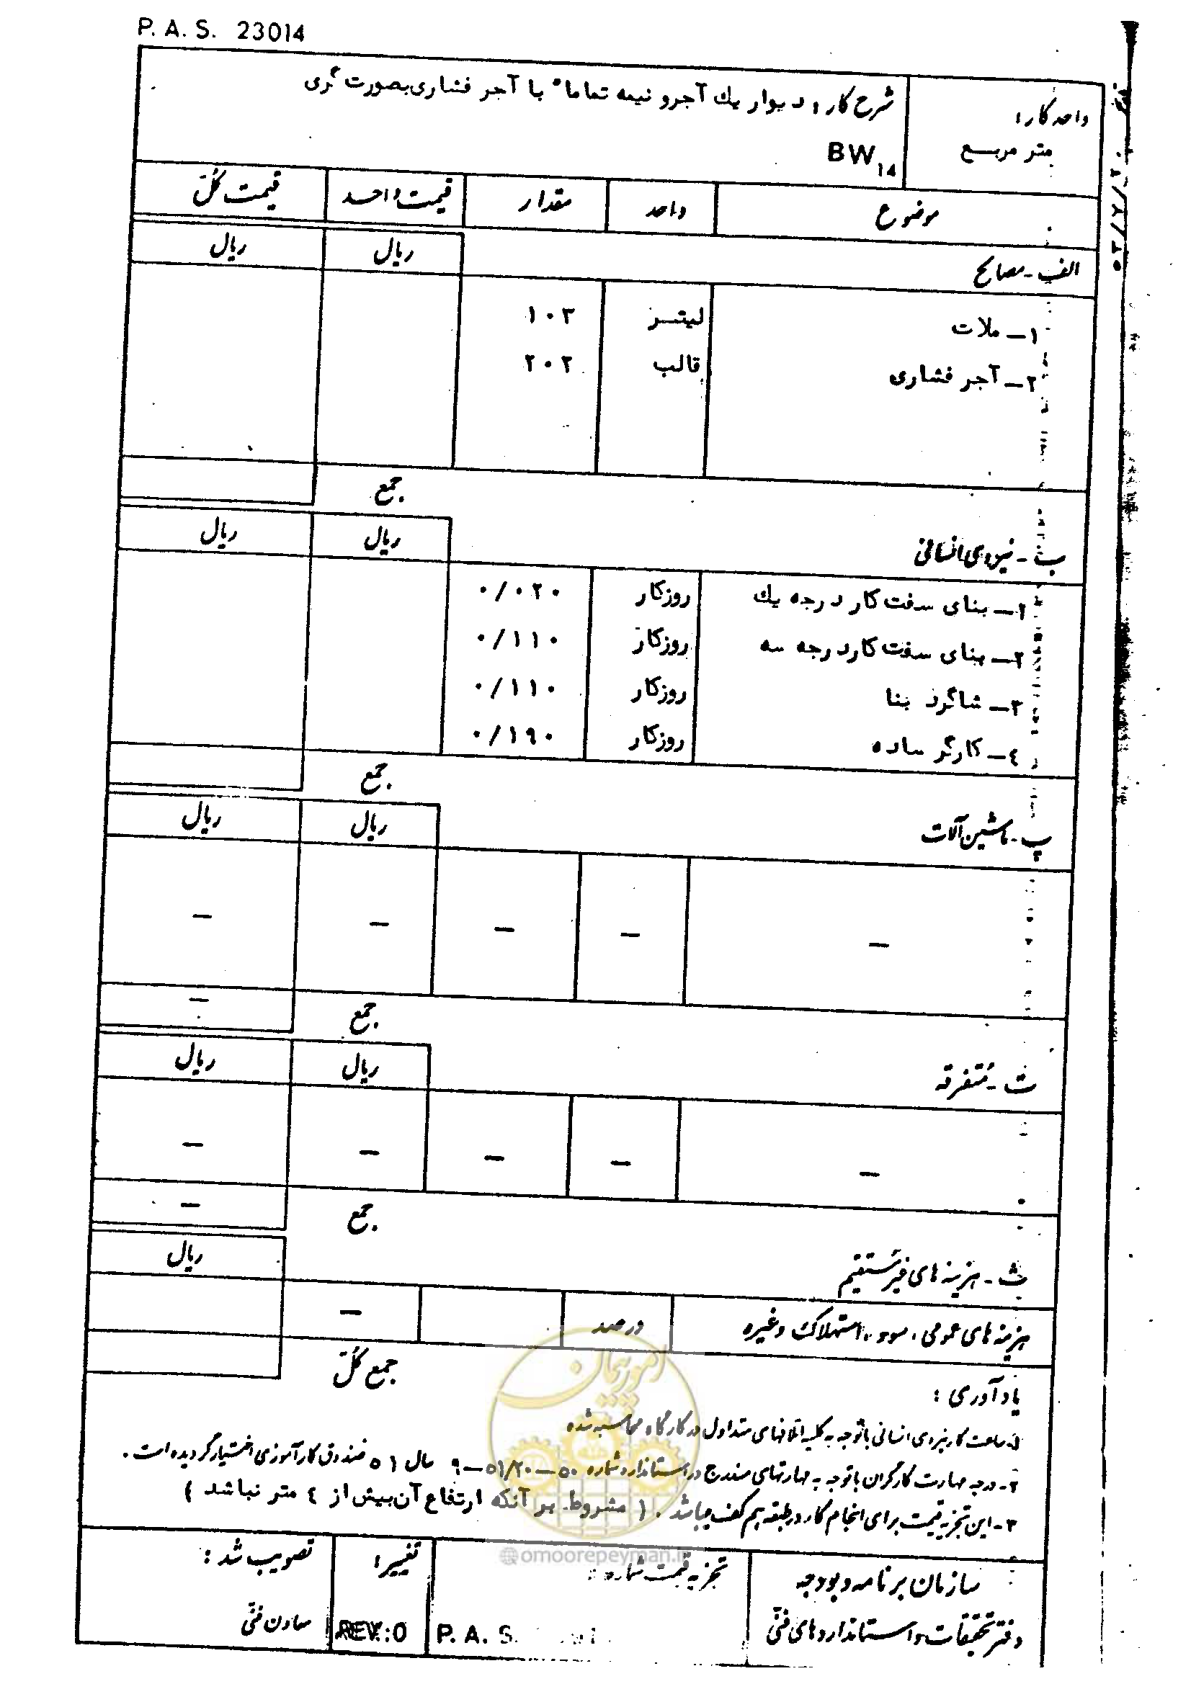 P. A. S. 23014
واحد کار :
متر مربع
شرح کار : دیوار یك آجرو نیمه تماما" با آجر فشاری بصورت گری
BW14
موضوع واحد مقدار قیمت واحد قیمت کُل
الف - مصالح ریال ریال
۱- ملات لیتر ۱۰۳
۲- آجر فشاری قالب ۲۰۲
جمع
ب - نیروی انسانی ریال ریال
۱- بنای سفت کار درجه یك روزکار ۰/۰۲۰
۲- بنای سفت کار درجه سه روزکار ۰/۱۱۰
۳- شاگرد بنا روزکار ۰/۱۱۰
٤- کارگر ساده روزکار ۰/۱۹۰
جمع
پ - ماشین آلات ریال ریال
- - - - -
جمع -
ت - مُتفرقه ریال ریال
- - - - -
جمع -
ث - هزینه های غیرمُستقیم ریال
هزینه های عمومی ، سود ، استهلاک وغیره درصد -
جمع کُل
یادآوری :
۱- ساعت کار نیروی انسانی با توجه به کلیه اتلافهای متداول در کارگاه محاسبه شده
۲- درجه مهارت کارگران با توجه به مهارتهای مندرج در استاندارد شماره ۵۰-۵۱/۲۰-۹ سال ۵۱ صندوق کارآموزی اختیار گردیده است .
۳- این تجزیه قیمت برای انجام کار در طبقه هم کف میباشد . ( مشروط بر آنکه ارتفاع آن بیش از ٤ متر نباشد )
@omoorepeyman.ir
امور پیمان
سازمان برنامه و بودجه
دفتر تحقیقات و استانداردهای فنّی
تجزیه قیمت شماره :
P. A. S.
تغییر :
REV.:0
تصویب شد :
معاون فنّی